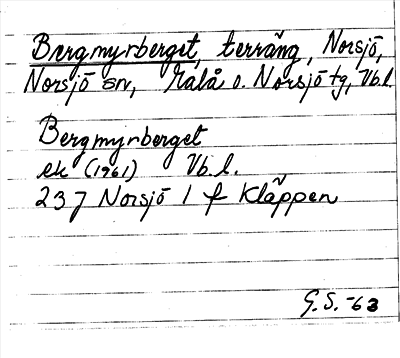 Bergmyrberget, terräng, Norsjö,
Norsjö sn, Malå o. Norsjö tg, Vb.l.
Bergmyrberget
ek (1961) Vb.l.
237 Norsjö 1 f Kläppen
G.S. -63